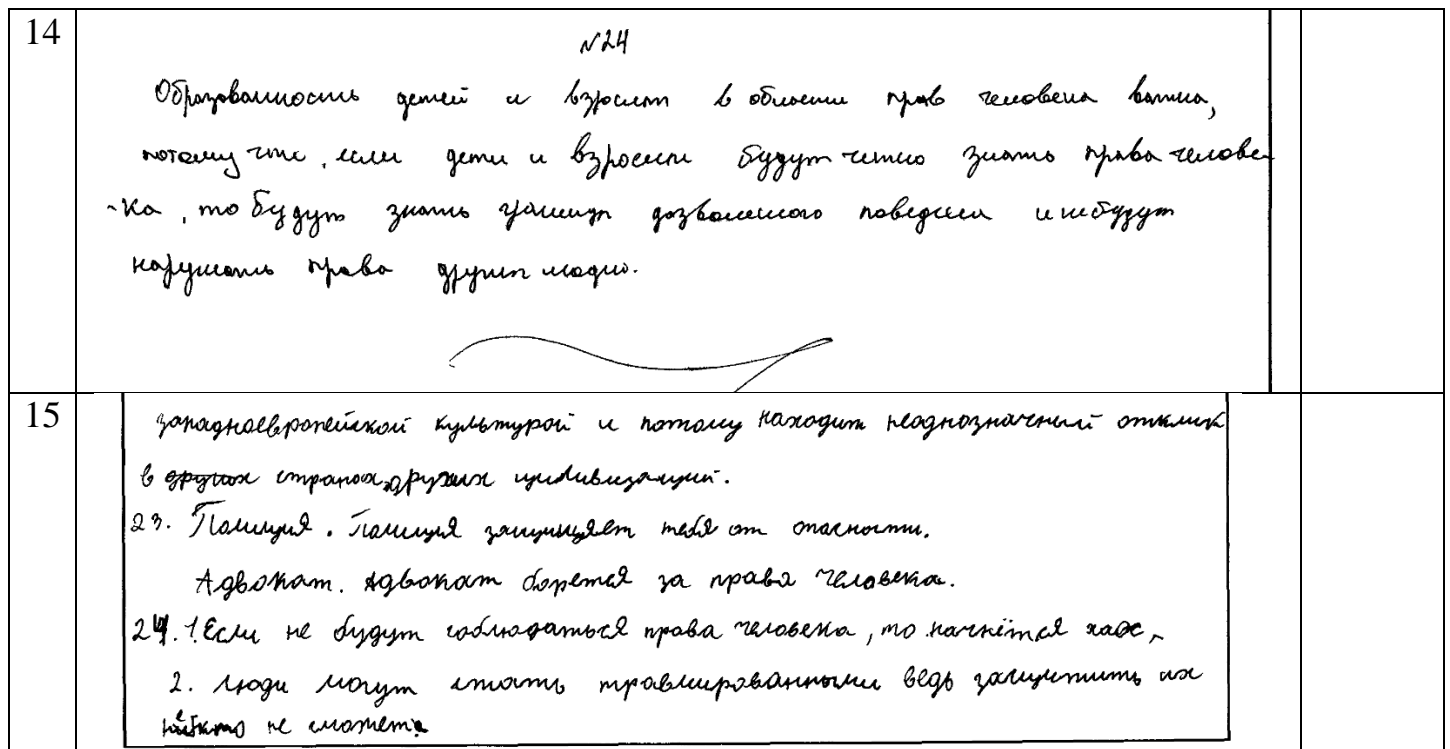 14
№24
Образованность детей и взрослых в области прав человека важна,
потому что, если дети и взрослые будут четко знать права челове
-ка, то будут знать границы дозволенного поведения и не будут
нарушать права других людей.
15
западноевропейской культурой и потому находит неоднозначный отклик
в других странах других цивилизаций.
23. Полиция. Полиция защищает тебя от опасности.
Адвокат. Адвокат борется за права человека.
24. 1. Если не будут соблюдаться права человека, то начнётся хаос,
2. люди могут стать травмированными ведь защитить их
никто не сможет.